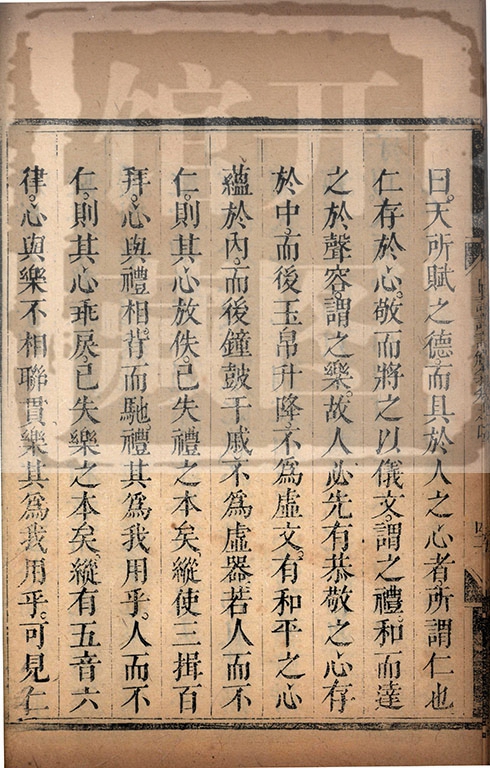 曰。天所賦之德。而具於人之心者。所謂仁也
仁存於心。敬而將之以儀文。謂之禮。和而達
之於聲容。謂之樂。故人必先有恭敬之心存
於中。而後玉帛升降。不為虛文。有和平之心
蘊於內。而後鐘鼓干戚不為虛器若人而不
仁。則其心放佚。已失禮之本矣。縱使三揖百
拜。心與禮相背而馳禮其為我用乎。人而不
仁。則其心乖戾。已失樂之本矣。縱有五音六
律。心與樂不相聯貫。樂其為我用乎。可見仁